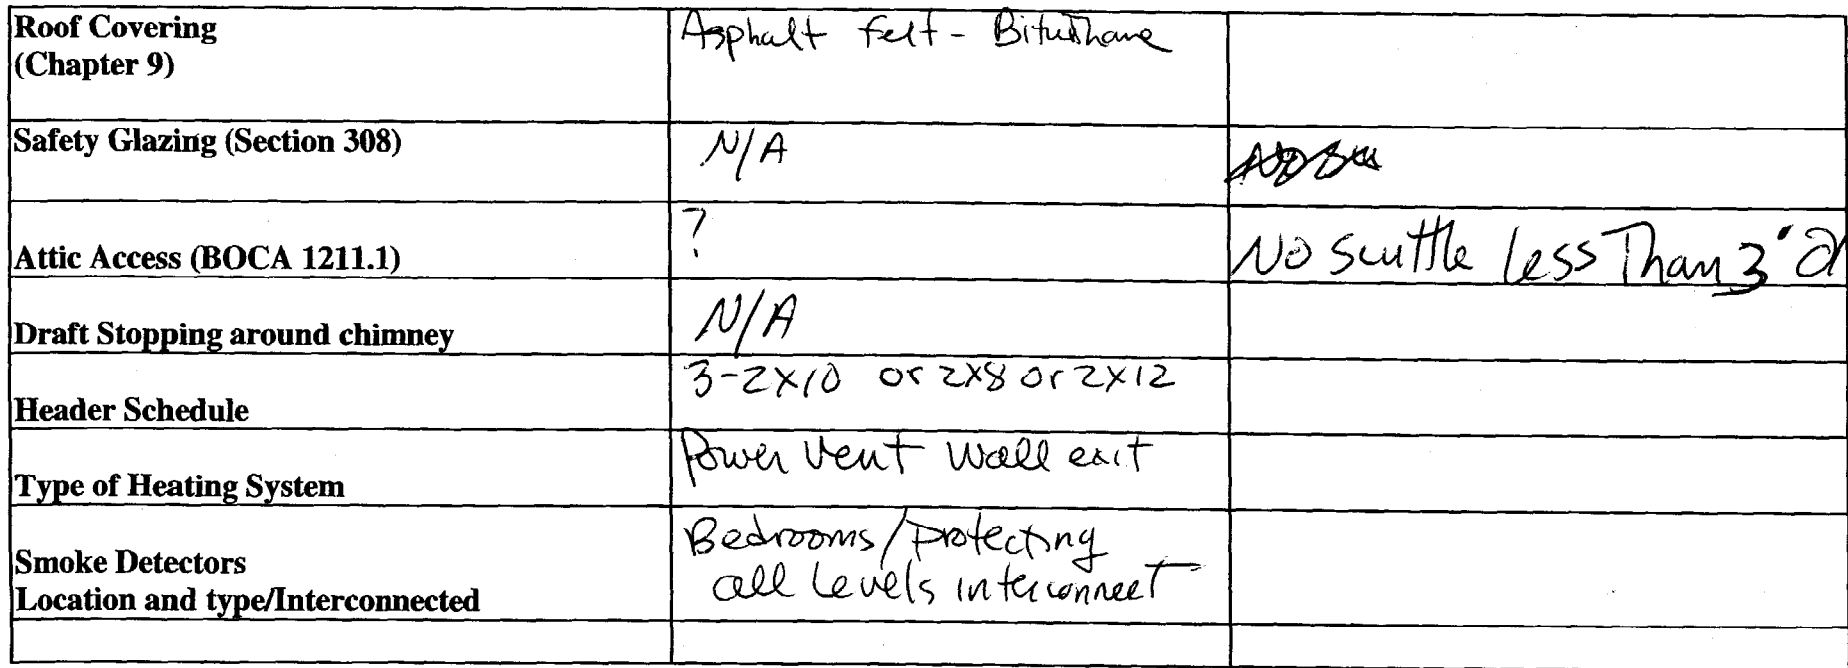 Roof Covering
(Chapter 9)
Asphalt felt - Bituthane
Safety Glazing (Section 308)
N/A
Attic Access (BOCA 1211.1)
?
No scuttle less Than 3'
Draft Stopping around chimney
N/A
Header Schedule
3-2x10 or 2x8 or 2x12
Type of Heating System
Power vent wall exit
Smoke Detectors
Location and type/Interconnected
Bedrooms/protecting
all levels interconnect